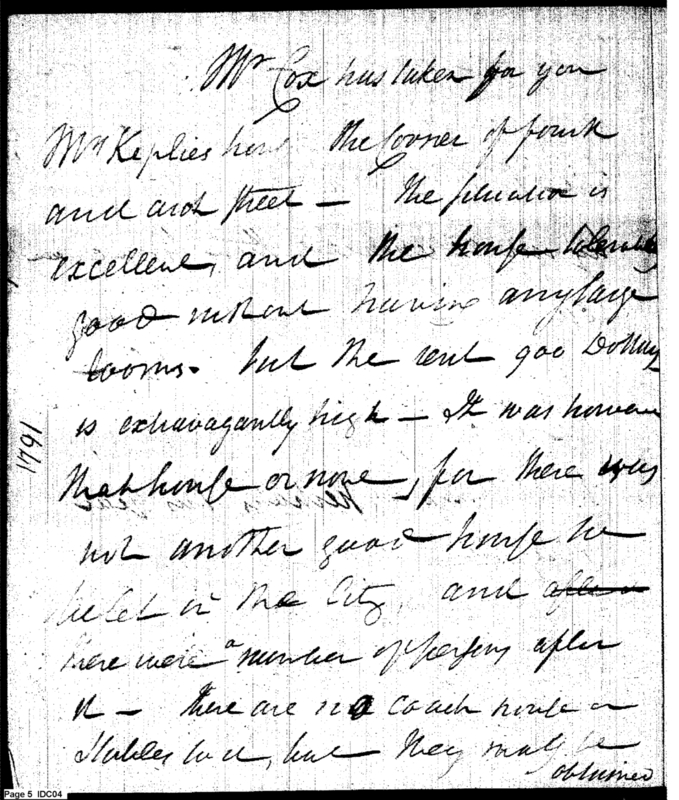 Mr Cox has taken for you
Mrs Keplies house the Corner of fourth
and arch street — The situation is
excellent, and the house tolerably
good without having any large
rooms. but the rent 900 Dollars
is extravagantly high — It was however
that house or none, for there was
not another good house to
be let in the City, and after
there were a number of persons after
it — There are no coach house or
Stables to it, but they may be
obtained
1791
Page 5 IDC04